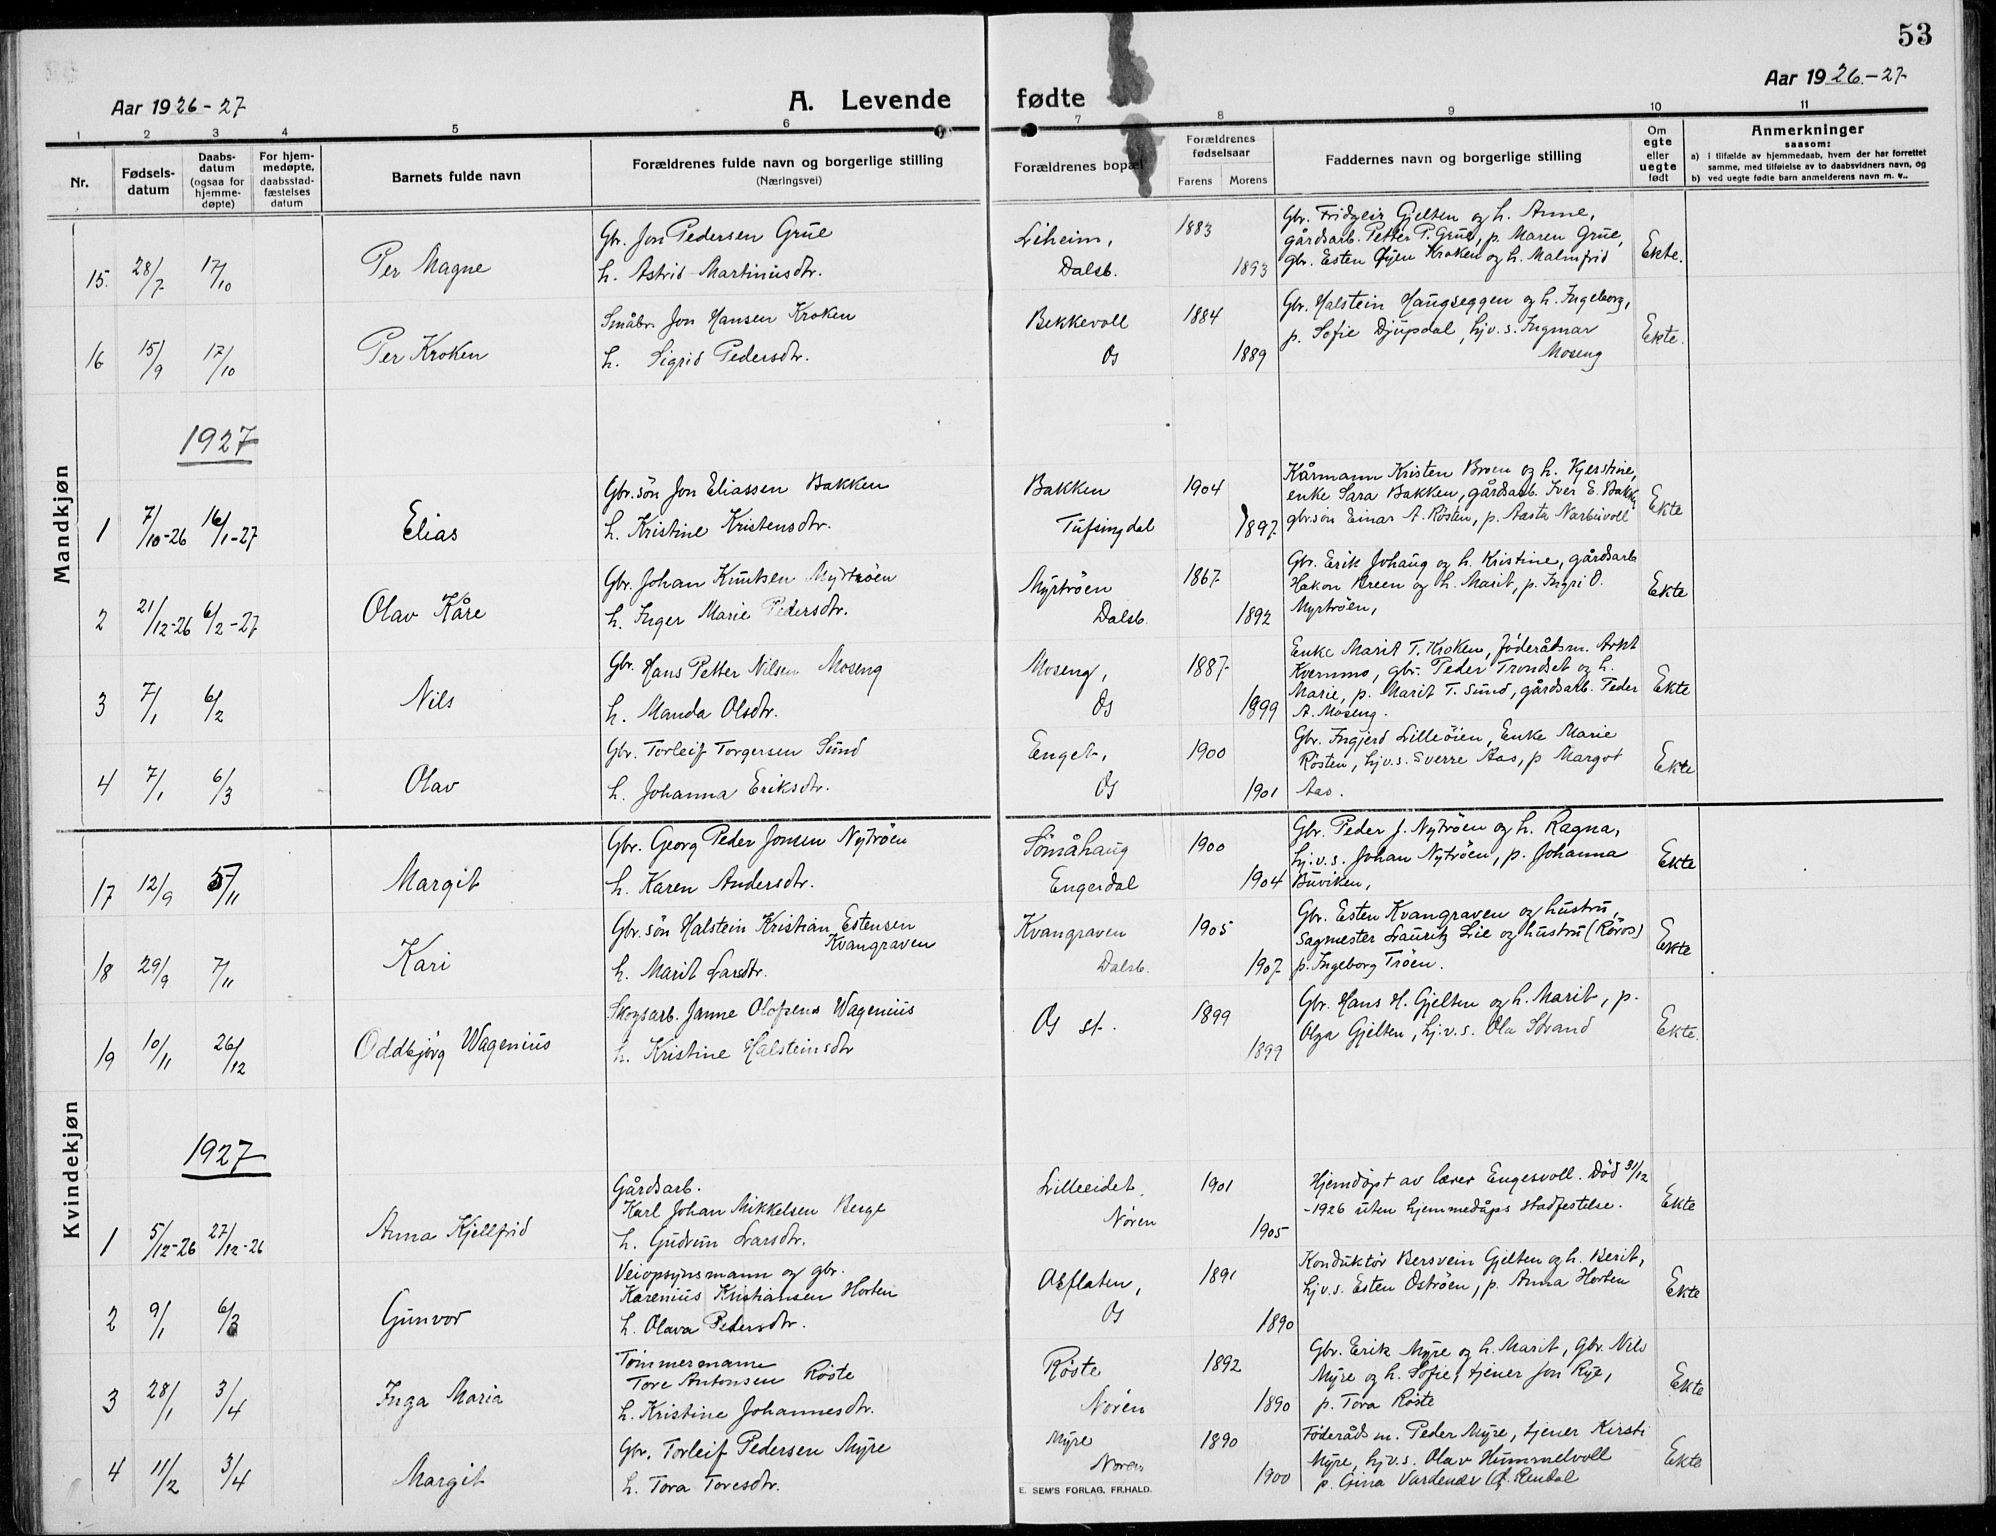 53
Aar 1926-27
A. Levende fødte
Aar 1926-27
1 2 3 4 5 6 7 8 9 10 11
Nr.
Fødsels-
datum
Daabs-
datum
(ogsaa for
hjemme-
døpte)
For hjem-
medøpte,
daabsstad-
fæstelses
datum
Barnets fulde navn
Forældrenes fulde navn og borgerlige stilling
(Næringsvei)
Forældrenes bopæl
Forældrenes
fødselsaar
Farens Morens
Faddernes navn og borgerlige stilling
Om
egte
eller
uegte
født
Anmerkninger
saasom:
a) i tilfælde av hjemmedaab, hvem der har forrettet
samme, med tilføielse av to daabsvidners navn, og
b) ved uegte fødte barn anmelderens navn m. v..
Mandkjøn
15. 28/7 17/10 Per Magne
Gbr. Jon Pedersen Grue
h. Astrid Martinusdtr.
Liheim,
Dalsb.
1883
1893
Gbr. Fridgeir Gjelten og h. Anne,
gårdsarb. Petter P. Grue, p. Maren Grue,
gbr. Esten Øyen Kroken og h. Malmfrid
Ekte.
16 15/9 17/10 Per Kroken
Småbr. Jon Hansen Kroken
h. Sigrid Pedersdtr.
Bekkevoll
Os
1884
1889
Gbr. Halstein Haugseggen og h. Ingeborg,
p. Sofie Djupdal, hj.v.s. Ingmar
Moseng
Ekte.
1927
1 7/10-26 16/1-27 Elias
Gbr.søn Jon Eliassen Bakken
h. Kristine Kristensdtr.
Bakken
Tufsingdal
1904
1897
Kårmann Kristen Broen og h. Kjerstine,
enke Sara Bakken, gårdsarb. Iver E. Bakk
gbr.søn Einar A. Røsten, p. Aasta Narbuvoll
Ekte
2 21/12-26 6/2-27 Olav Kåre
Gbr. Johan Knutsen Myrtrøen
h. Inger Marie Pedersdtr.
Myrtrøen
Dalsb.
1867
1892
Gbr. Erik Johaug og h. Kristine, gårdsarb
Hakon Breen og h. Marit, p. Ingri O.
Myrtrøen,
Ekte
3 7/1 6/2 Nils
Gbr. Hans Petter Nilsen Moseng
h. Manda Olsdtr.
Moseng,
Os
1887
1899
Enke Marit T. Kroken, føderådsm. Arnt
Kvernmo, gbr. Peder Trondset og h.
Marie, p. Marit T. Sund, gårdsarb. Peder
A. Moseng.
Ekte
4 7/1 6/3 Olav
Gbr. Torleif Torgersen Sund
h. Johanna Eriksdtr.
Enget,
Os
1900
1901
Gbr. Ingjerd Lilleøien, Enke Marie
Røsten, hj.v.s. Sverre Aas, p Margot
Aas.
Ekte
Kvindekjøn
17 12/9 7/11 Margit
Gbr. Georg Peder Jonsen Nytrøen
h. Karen Andersdtr.
Sømåhaug
Engerdal
1900
1904
Gbr. Peder J. Nytrøen og h. Ragna,
hj.v.s. Johan Nytrøen, p. Johanna
Buviken,
Ekte
18 29/9 7/11 Kari
Gbr.søn Halstein Kristian Estensen
Kvangraven
h. Marit Larsdtr.
Kvangraven
Dalsb.
1905
1907
Gbr. Esten Kvangraven og hustru,
Sagmester Lauritz Lie og hustru (Røros)
p. Ingeborg Trøen.
Ekte
19 10/11 26/12 Oddbjørg Wagenius
Skogsarb. Janne Olofsens Wagenius
h. Kristine Halsteinsdtr
Os st.
1899
1899
Gbr. Hans H. Gjelten og h. Marit, p.
Olga Gjelten, hj.v.s. Ola Strand
Ekte.
1927
1 5/12-26 27/12-26 Anna Kjellfrid
Gårdsarb.
Karl Johan Mikkelsen Berge
h. Gudrun Larsdtr.
Lilleeidet,
Nøren
1901
1905
Hjemdøpt av lærer Engesvoll. Død 31/12
-1926 uten hjemmedåps stadfestelse.
Ekte
2 9/1 6/3 Gunvor
Veiopsynsmann og gbr.
Karenius Kristiansen Horten
h. Olava Pedersdtr.
Osflaten,
Os
1891
1890
Konduktør Bersvein Gjelten og h. Berit,
hj.v.s. Esten Østrøen, p. Anna Horten
Ekte
3 28/1 3/4 Inga Maria
Tømmermann
Tore Antonsen Røste
h. Kristine Johannesdtr.
Røste
Nøren
1892
1890
Gbr. Erik Myre og h. Marit, Gbr. Nils
Myre og h. Sofie, tjener Jon Rye,
p. Tora Røste
Ekte
4 11/2 3/4 Margit
Gbr. Torleif Pedersen Myre
h. Tora Toresdtr.
Myre
Nøren
1890
1900
Føderåds m. Peder Myre, tjener Kirsti
Myre, hj.v.s. Olav Hummelvoll
p. Gina Vardenær Ø. Rendal
Ekte
E. SEM'S FORLAG, FR.HALD.